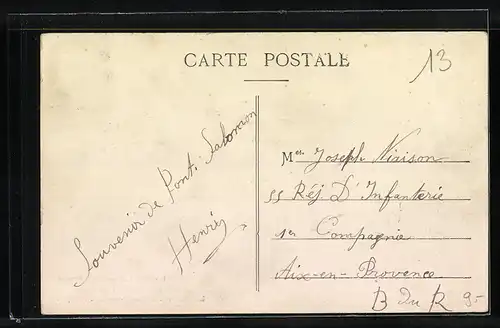 CARTE POSTALE
13
Souvenir de Pont-Salomon
Henri
Mr Joseph
55 Réj D'Infanterie
1er Compagnie
Aix-en-Provence
B Du R 9-